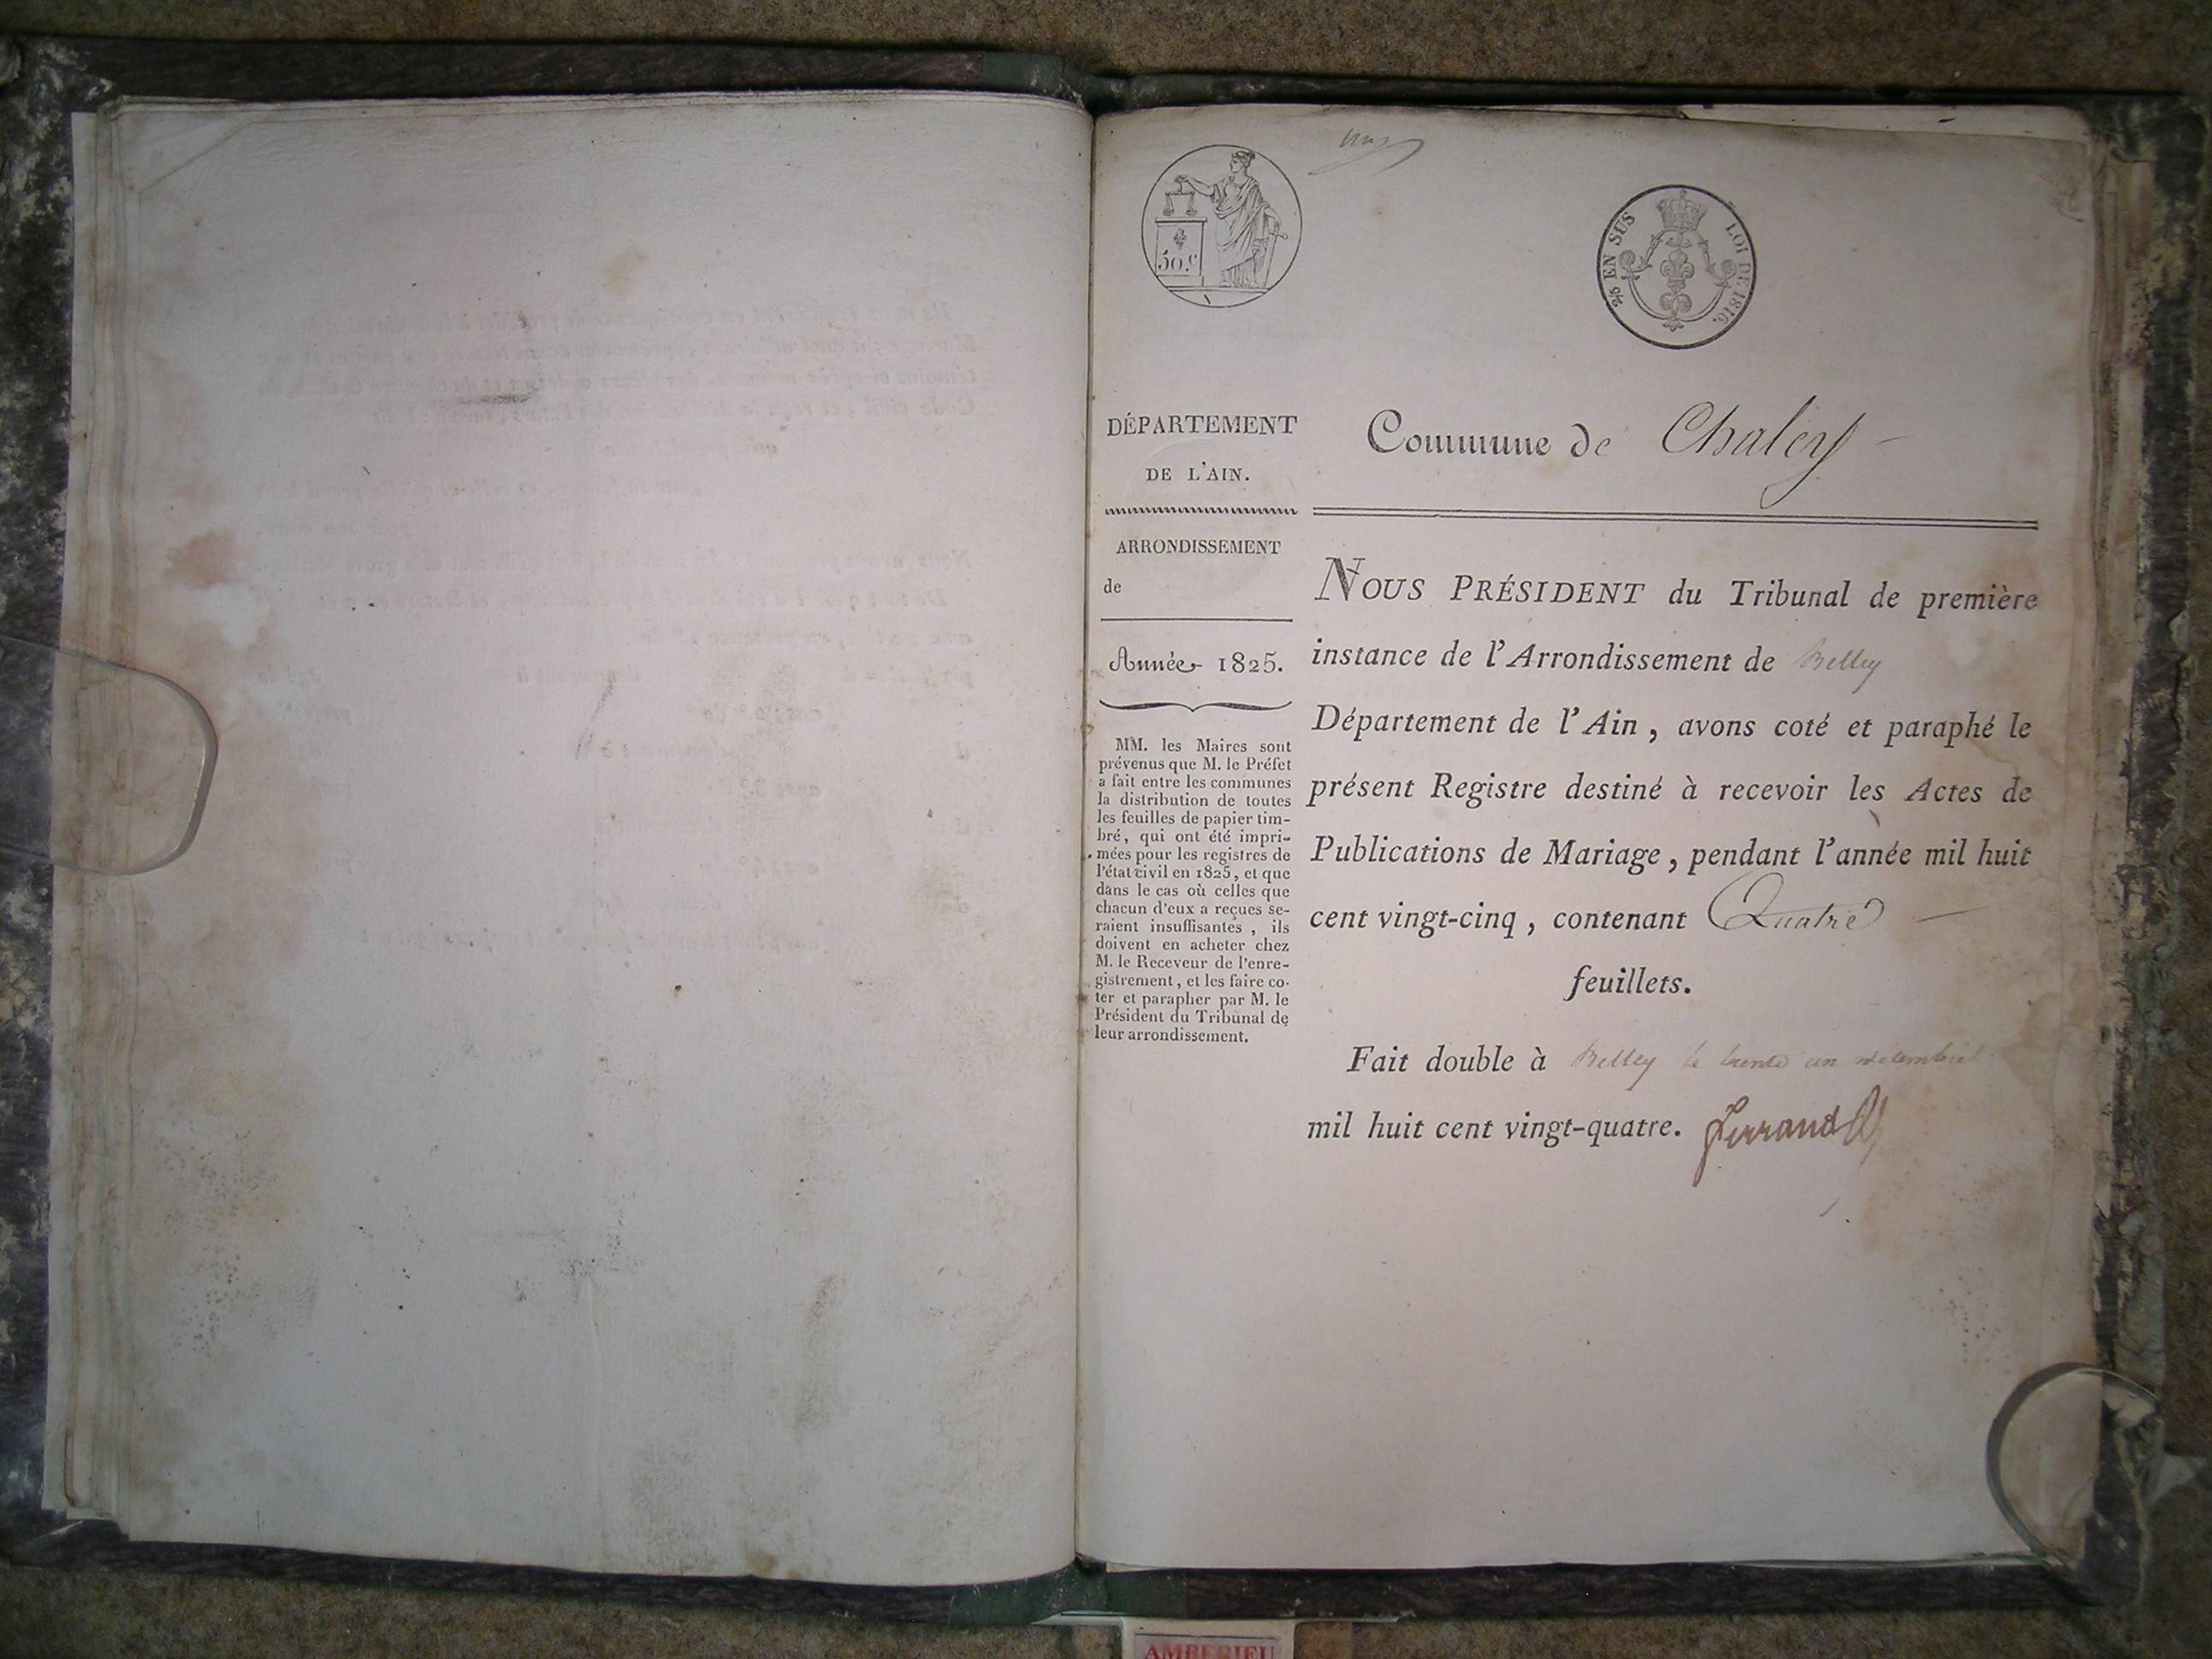 50.c
2/5 EN SUS LOI DE 1816.
DÉPARTEMENT
DE L'AIN.
ARRONDISSEMENT
de
Année 1825.
MM. les Maires sont
prévenus que M. le Préfet
a fait entre les communes
la distribution de toutes
les feuilles de papier tim-
bré, qui ont été impri-
mées pour les registres de
l'état civil en 1825, et que
dans le cas où celles que
chacun d'eux a reçues se-
raient insuffisantes, ils
doivent en acheter chez
M. le Receveur de l'enre-
gistrement, et les faire co-
ter et parapher par M. le
Président du Tribunal de
leur arrondissement.
Commune de Chaley
NOUS PRÉSIDENT du Tribunal de première
instance de l'Arrondissement de Belley
Département de l'Ain, avons coté et paraphé le
présent Registre destiné à recevoir les Actes de
Publications de Mariage, pendant l'année mil huit
cent vingt-cinq, contenant Quatre
feuillets.
Fait double à Belley le trente un décembre
mil huit cent vingt-quatre. Ferrand
AMBERIEU